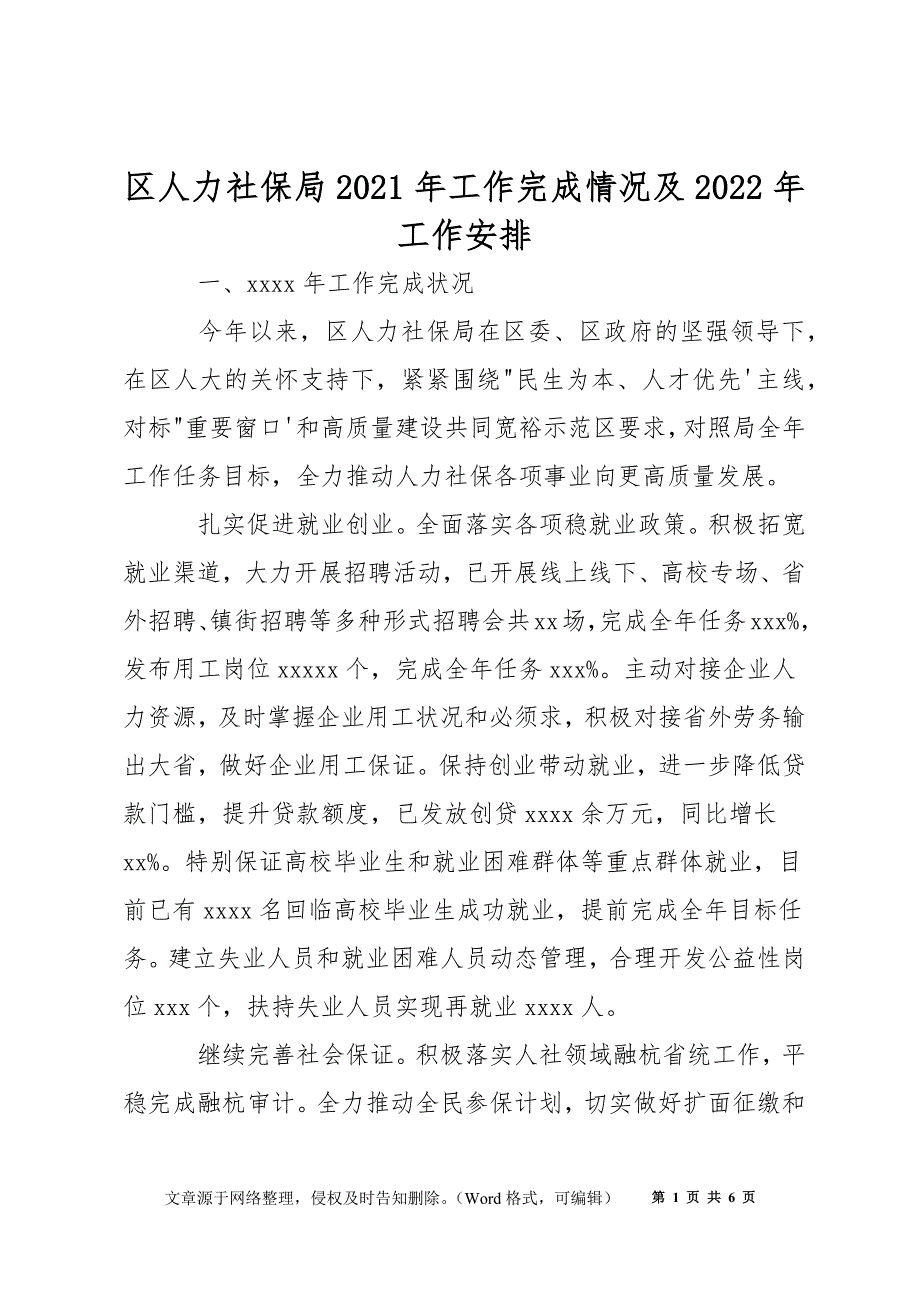 区人力社保局 2021 年工作完成情况及 2022 年
工作安排
一、xxxx 年工作完成状况
今年以来，区人力社保局在区委、区政府的坚强领导下，
在区人大的关怀支持下，紧紧围绕"民生为本、人才优先'主线，
对标"重要窗口'和高质量建设共同宽裕示范区要求，对照局全年
工作任务目标，全力推动人力社保各项事业向更高质量发展。
扎实促进就业创业。全面落实各项稳就业政策。积极拓宽
就业渠道，大力开展招聘活动，已开展线上线下、高校专场、省
外招聘、镇街招聘等多种形式招聘会共 xx 场，完成全年任务 xxx%，
发布用工岗位 xxxxx 个，完成全年任务 xxx%。主动对接企业人
力资源，及时掌握企业用工状况和必须求，积极对接省外劳务输
出大省，做好企业用工保证。保持创业带动就业，进一步降低贷
款门槛，提升贷款额度，已发放创贷 xxxx 余万元，同比增长
xx%。特别保证高校毕业生和就业困难群体等重点群体就业，目
前已有 xxxx 名回临高校毕业生成功就业，提前完成全年目标任
务。建立失业人员和就业困难人员动态管理，合理开发公益性岗
位 xxx 个，扶持失业人员实现再就业 xxxx 人。
继续完善社会保证。积极落实人社领域融杭省统工作，平
稳完成融杭审计。全力推动全民参保计划，切实做好扩面征缴和
文章源于网络整理，侵权及时告知删除。（Word 格式，可编辑） 第 1 页 共 6 页